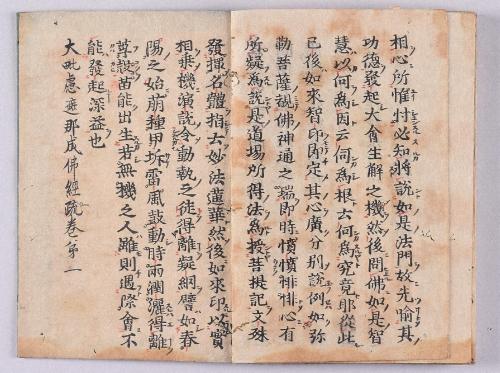 相心所惟忖必知將説如是法門故先愉其
功德發起大會生解之機然後問佛如是智
慧以何爲因云何爲根云何爲究竟耶從此
已後如來智印即定其心廣分別説例如弥
勒菩薩覩佛神通之端即時憤憤悱悱心有
所疑爲説是道場所得法爲授菩提記文殊
發揮名體指云妙法蓮華然後如來印以實
相乗機演説令動執之徒得離疑網譬如春
陽之始萠種甲坼雷風鼓動時雨潤灑得離
尊殻苗能出生若無機之人雖則遇際會不
能發起深益也
大毗盧遮那成佛經疏卷第一